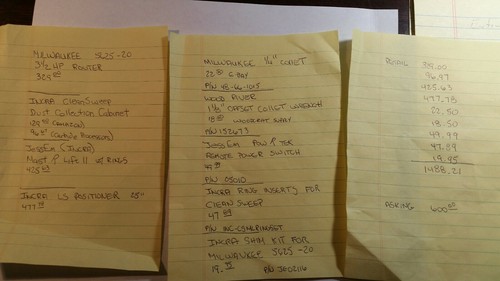 MILWAUKEE 5625-20
3 1/2 HP ROUTER
329.00
INCRA CleanSweep
Dust Collection Cabinet
JessEm (INCRA)
Mast R Lift II w/ RINGS
425.63
INCRA LS POSITIONER 25"
477.78
MILWAUKEE 1/4" COLLET
22.50 E-BAY
P/N 48-66-1015
WOOD RIVER
1 1/8" OFFSET COLLET WRENCH
18.50 WOODCRAFT
P/N 152673
JessEm
REMOTE POWER SWITCH
P/N 05010
INCRA RING INSERTS FOR
CLEAN SWEEP
47.89
P/N INC-CSMLRINGSET
INCRA SHIM KIT FOR
MILWAUKEE 5625-20
19.95
RETAIL
96.97
425.63
477.78
22.50
18.50
49.99
47.89
19.95
1488.21
ASKING 600.00